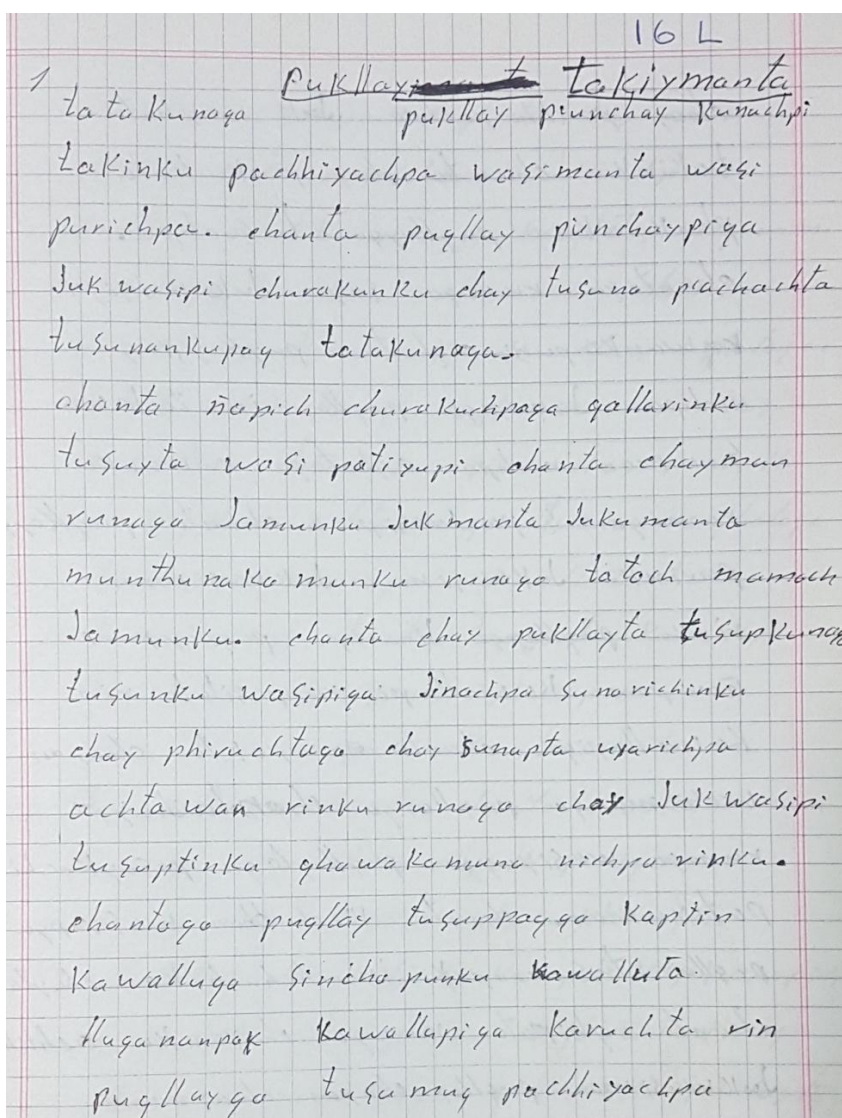 16 L
1 Pukllay takiymanta
tatakunaqa pukllay punchay kunachpi
takinku pachhiyachpa wasimanta wasi
purichpa. chanta puqllay punchaypiqa
Juk wasipi churakunku chay tusuna pachachta
tusunankupaq tatakunaqa.
chanta ñapich churakuchpaqa qallarinku
tusuyta wasi patiyupi chanta chayman
runaqa Jamunku Juk manta Juku manta
munthunakamunku runaqa tatach mamach
Jamunku. chanta chay pukllayta tusupkunaqa
tusunku wasipiqa Jinachpa sunarichinku
chay phiruchtaqa chay sunapta uyarichpa
achta wan rinku runaqa chay Juk wasipi
tusuptinku qhawakamuna nichpa rinku.
chantaqa puqllay tusuppaqqa Kaptin
Kawalluqa sincha punku Kawalluta
lluqananpak Kawallupiqa Karuchta rin
puqllayqa tusumuq pachhiyachpa